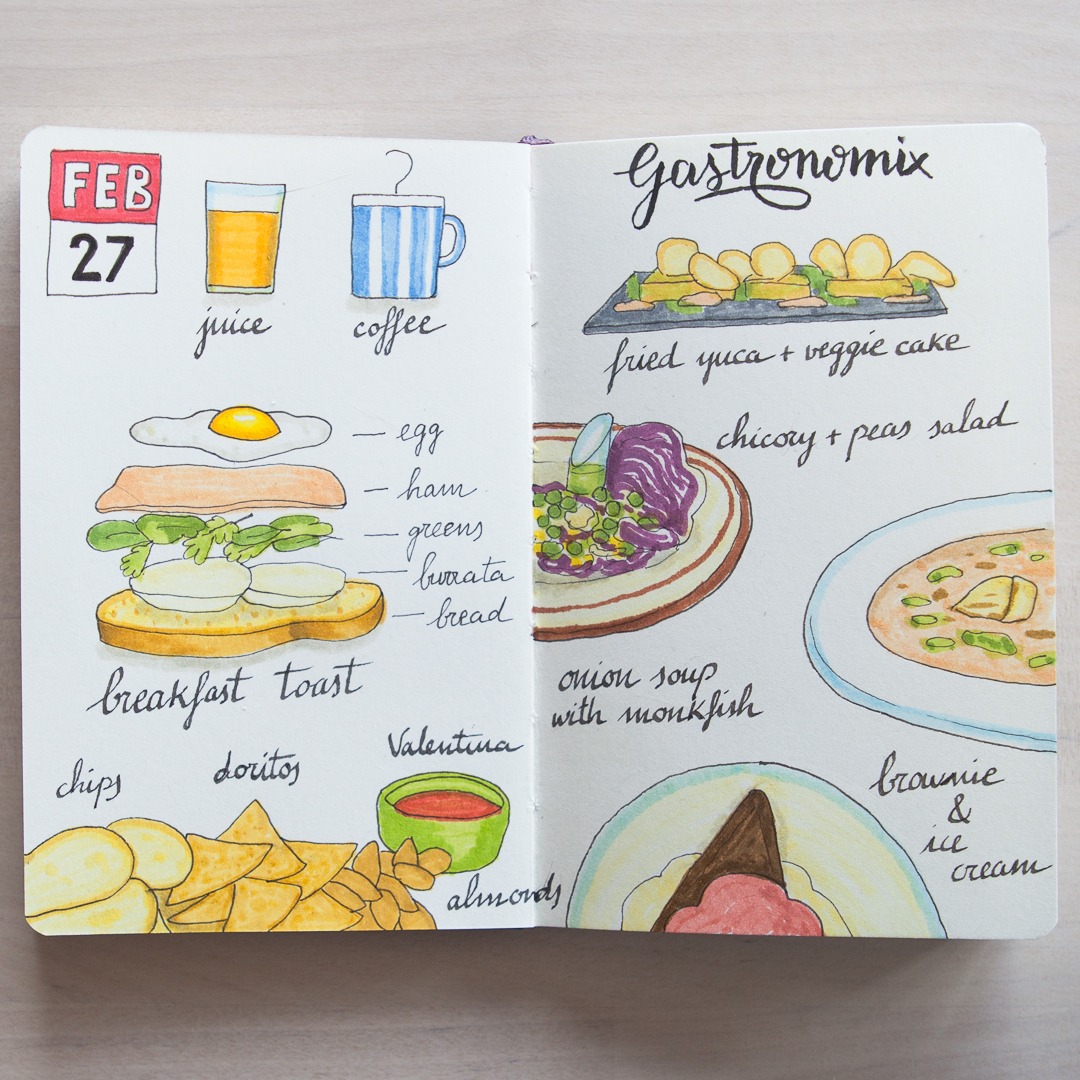 FEB
27
juice
coffee
egg
ham
greens
burrata
bread
breakfast toast
chips
doritos
Valentina
almonds
Gastronomix
fried yuca + veggie cake
chicory + peas salad
onion soup
with monkfish
brownie
&
ice
cream